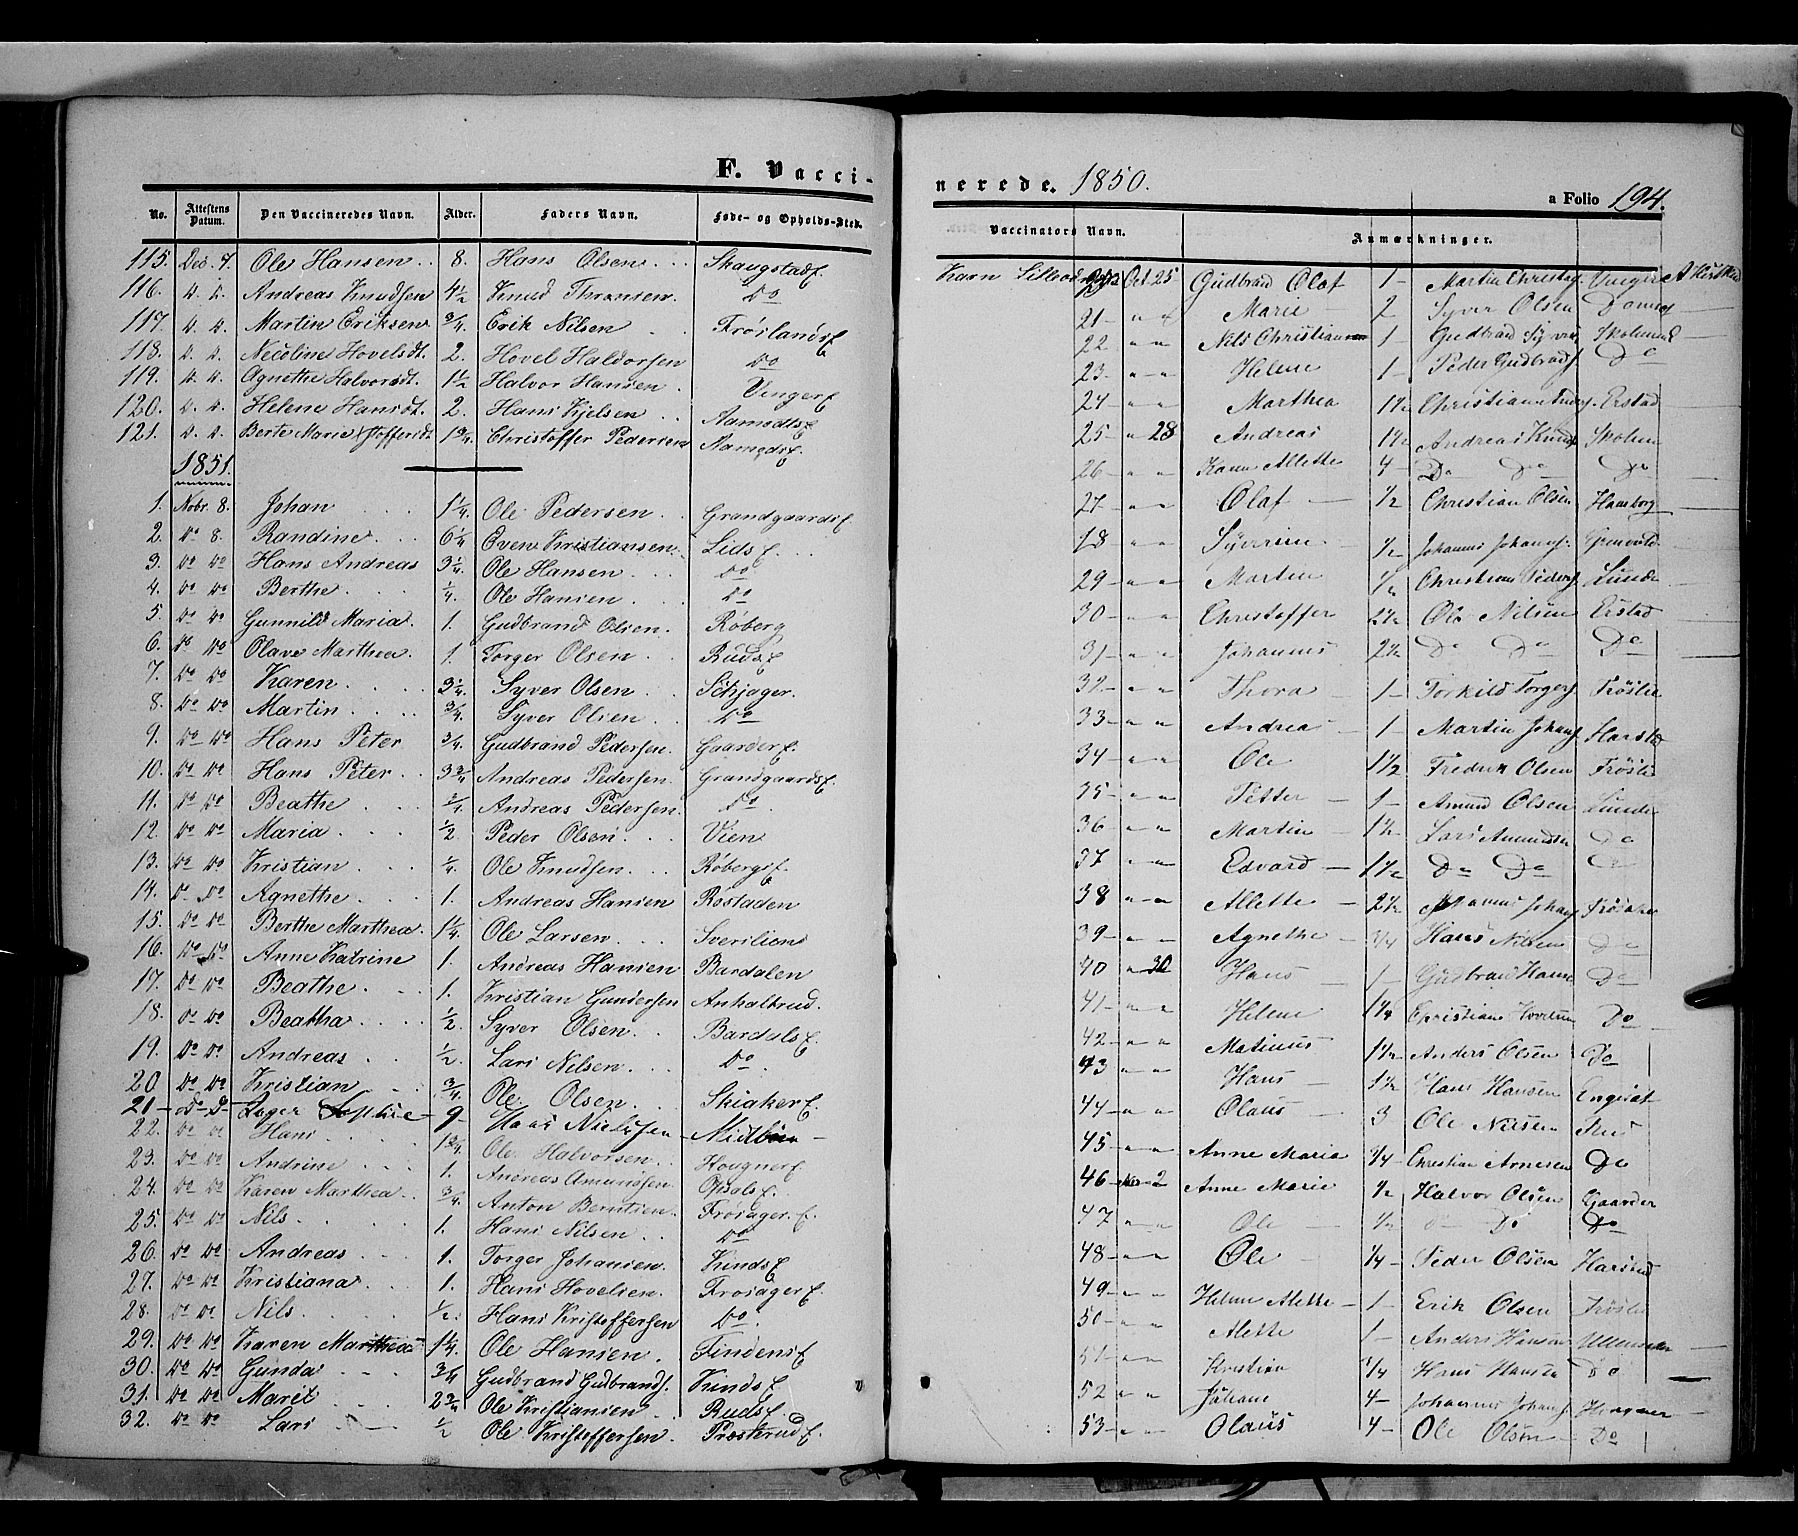 F. Vacci-
No. Attestens Datum. Den Vaccineredes Navn. Alder. Faders Navn. Føde- og Opholds-Sted.
115. Dec. 7. Ole Hansen 8. Hans Olsen SkaugstadE
116. d. d. Andreas Knudsen 4½ Knud Thronsen Do
117. d. d. Martin Eriksen ¾ Erik Nilsen FrøislandsE
118. d. d. Nicoline Hovelsdt. 2. Hovel Haldorsen Do
119. d. d. Agnethe Halvorsdt. 1½ Halvor Hansen VengerE
120. d. d. Helene Hansdt. 2. Hans Kjelsen AamodtsE
121. d. d. Berte Marie Stofferdt. 1¾ Christoffer Pedersen AamodsE
1851.
1. Nobr. 8. Johan 1¼ Ole Pedersen GrandgaardsE
2. Do 8. Randine 6¼ Even Kristiansen LidsE
3. Do Do Hans Andreas 3¼ Ole Hansen Do
4. Do Do Berthe ¼ Ole Hansen Do
5. Do Do Gunnild Maria. 1. Gudbrand Olsen. Roberg
6. Do Do Olave Marthea. 1. Torger Olsen RudsE
7. Do Do Karen 3¼ Syver Olsen Setsjager.
8. Do Do Martin ¾ Syver Olsen Do
9. Do Do Hans Peter ¾ Gudbrand Pedersen. GaarderE
10. Do Do Hans Peter 3¾ Andreas Pedersen. GrandgaardsE
11. Do Do Beathe ¾ Andreas Pedersen Do
12. Do Do Maria ½ Peder Olsen Vien
13. Do Do Kristian ¼ Ole Knudsen RøbergsE
14. Do Do Agnethe 1. Andreas Hansen Røstaden
15. Do Do Berthe Marthea 1¼ Ole Larsen Sverilien
16. Do Do Anne Katrine 1. Andreas Hansen Bardalen
17. Do Do Beathe 1. Kristian Gundersen Anhaltrud.
18. Do Do Beatha ½ Syver Olsen BardalsE
19. Do Do Andreas ½ Lars Nilsen Do
20 Do Do Kristian ¾ Ole Olsen SkiakerE
21 Do Do Inger Sophie 9 Hans Nielsen Midbøen
22. Do Do Hans 1¾ Ole Halvorsen HougnerE
23. Do Do Andrine 1. Andreas Amundsen OpsalsE
24. Do Do Karen Marthea ¾ Anton Berntsen FrøsagerE
25. Do Do Nils 1. Hans Nilsen Do
26. Do Do Andreas 1. Torger Johansen KindsE
27. Do Do Kristiana 1. Hans Hovelsen. FrøsagerE
28. Do Do Nils ½ Hans Kristoffersen Do
29. Do Do Karen Marthea 1¼ Ole Hansen FindensE
30. Do Do Gunda ¾ Gudbrand Gudbrands. KindsE
31. Do Do Marit 2¾ Ole Kristiansen RudsE
32. Do Do Lars ½ Ole Kristoffersen ProsterudE
nerede. 1850. a Folio 194.
Vaccinators Navn. Anmærkninger.
Karn Oct 25 Gudbrand Olaf 1 Martin Christofs
21 " " Marie 2 Syver Olsen
22 " " Nils Christian 1 Gudbrand Syvers
23 " " Helene 1 Peder Gudbrands Do
24 " " Marthea 1½ Christian Erstad
25 " 28 Andreas 1½ Andreas Knuds
26 " " Karen Allette 4 Do Do Do
27 " " Olaf ½ Christian Olsen
18 " " Syverine ½ Johannes Johans
29 " " Martin ½ Christian Peders Lunde
30 " " Christoffer 2½ Ole Nilsen Erstad
31 " " Johannes 2½ Do Do Do
32 " " Thora 1 Torkild Torgers Frøslie
33 " " Andrea 1 Martin Johans Harstad
34 " " Ole 1½ Fredrik Olsen Frøslie
35 " " Petter 1 Amund Olsen Lunde
36 " " Martin 1½ Lars Amundsen Do
37 " " Edvard 1½ Do Do Do
38 " " Allette 2½ Johannes Johans
39 " " Agnethe ¾ Hans Nilsen Do
40 " 30 Hans 1 Gudbrand Hanse Do
41 " " Helene 1¼ Christian Do
42 " " Matinus 1½ Anders Olsen Do
43 Hans 1½ Hans Hansen
44 " " Olaus 3 Ole Nilsen
45 " " Anne Maria ¾ Christian Arnesen Do
46 2 Anne Marie ½ Halvor Olsen Gaarder
47 " " Ole ½ Do Do Do
48 " " Ole ¼ Peder Olsen Harstad
49 " " Helene Alette 1 Erik Olsen Frøslie
50 Alette 1 Anders Hansen
51 " " Kristian ¾ Hans Hansen Do
52 " " Johane 4 Johannes Johans
53 " " Olaus 4 Ole Olsen Do